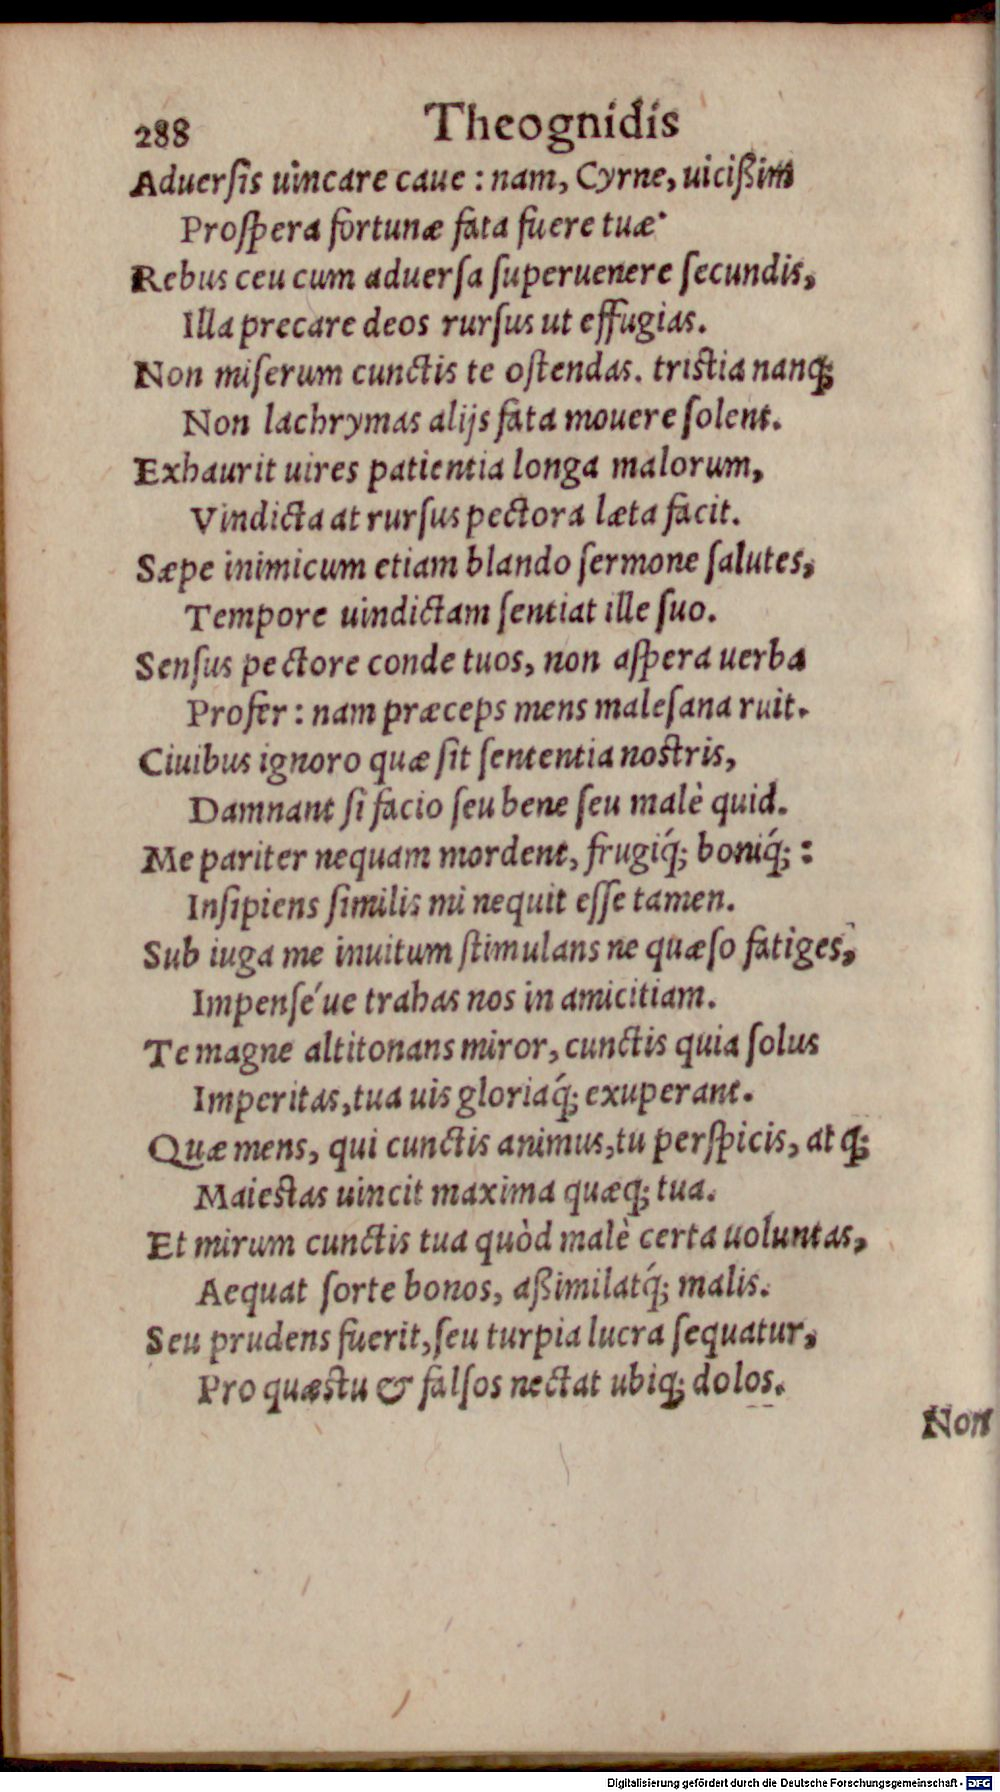 288 Theognidis
Aduerſis uincare caue : nam, Cyrne, uicißim
Proſpera fortunæ fata fuere tuæ.
Rebus ceu cum aduerſa ſuperuenere ſecundis,
Illa precare deos rurſus ut effugias.
Non miſerum cunctis te oſtendas. triſtia nanq;
Non lachrymas alijs fata mouere ſolent.
Exhaurit uires patientia longa malorum,
Vindicta at rurſus pectora læta facit.
Sæpe inimicum etiam blando ſermone ſalutes,
Tempore uindictam ſentiat ille ſuo.
Senſus pectore conde tuos, non aſpera uerba
Profer : nam præceps mens maleſana ruit.
Ciuibus ignoro quæ ſit ſententia noſtris,
Damnant ſi facio ſeu bene ſeu malè quid.
Me pariter nequam mordent, frugiq́; boniq́; :
Inſipiens ſimilis mi nequit eſſe tamen.
Sub iuga me inuitum ſtimulans ne quæſo fatiges,
Impenſé ue trahas nos in amicitiam.
Te magne altitonans miror, cunctis quia ſolus
Imperitas, tua uis gloriaq́; exuperant.
Quæ mens, qui cunctis animus, tu perſpicis, atq;
Maieſtas uincit maxima quæq; tua.
Et mirum cunctis tua quòd malè certa uoluntas,
Aequat ſorte bonos, aßimilatq́; malis.
Seu prudens fuerit, ſeu turpia lucra ſequatur,
Pro quæſtu & falſos nectat ubiq; dolos.
Non
Digitalisierung gefördert durch die Deutsche Forschungsgemeinschaft - DFG